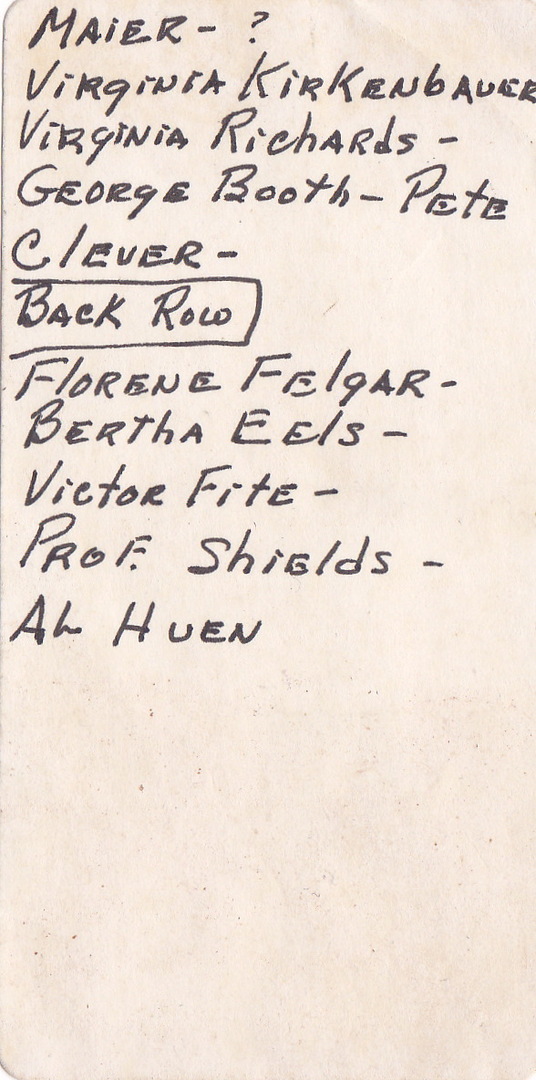 Maier - ?
Virginia Kirkenbauer
Virginia Richards -
George Booth - Pete
Clever -
Back Row
Florene Felgar -
Bertha Eels -
Victor Fite -
Prof. Shields -
Al Huen